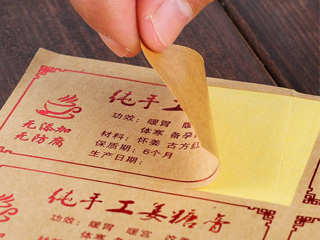 纯手工
功效：暖胃 暖
体寒 备孕
无添加
无防腐
材料：怀姜 古方红
保质期：6个月
生产日期：
纯手工姜糖膏
功效：暖胃 暖宫